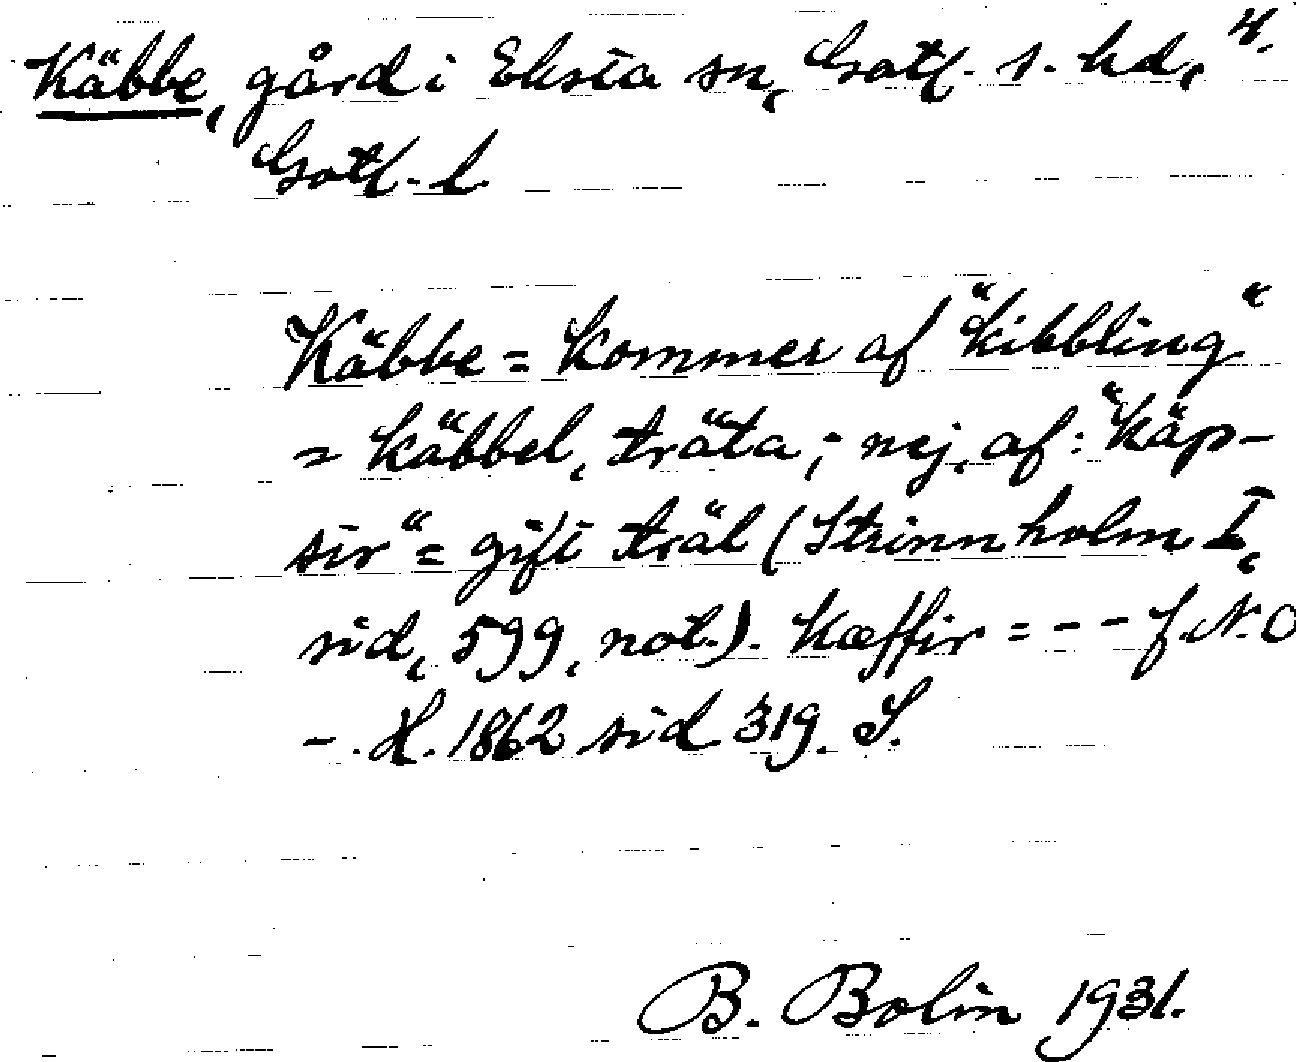 Käbbe, gård i Eksta sn, Gotl. s. hd, 4.
Gotl. l.
Käbbe = kommer af "kibbling"
= käbbel, träta; - nej, af: "käp-
sir" = gift träl (Strinnholm I,
sid, 599, not.). Kæffir = - - f. N. O
- . H. 1862 sid 319. S.
B. Bolin 1931.